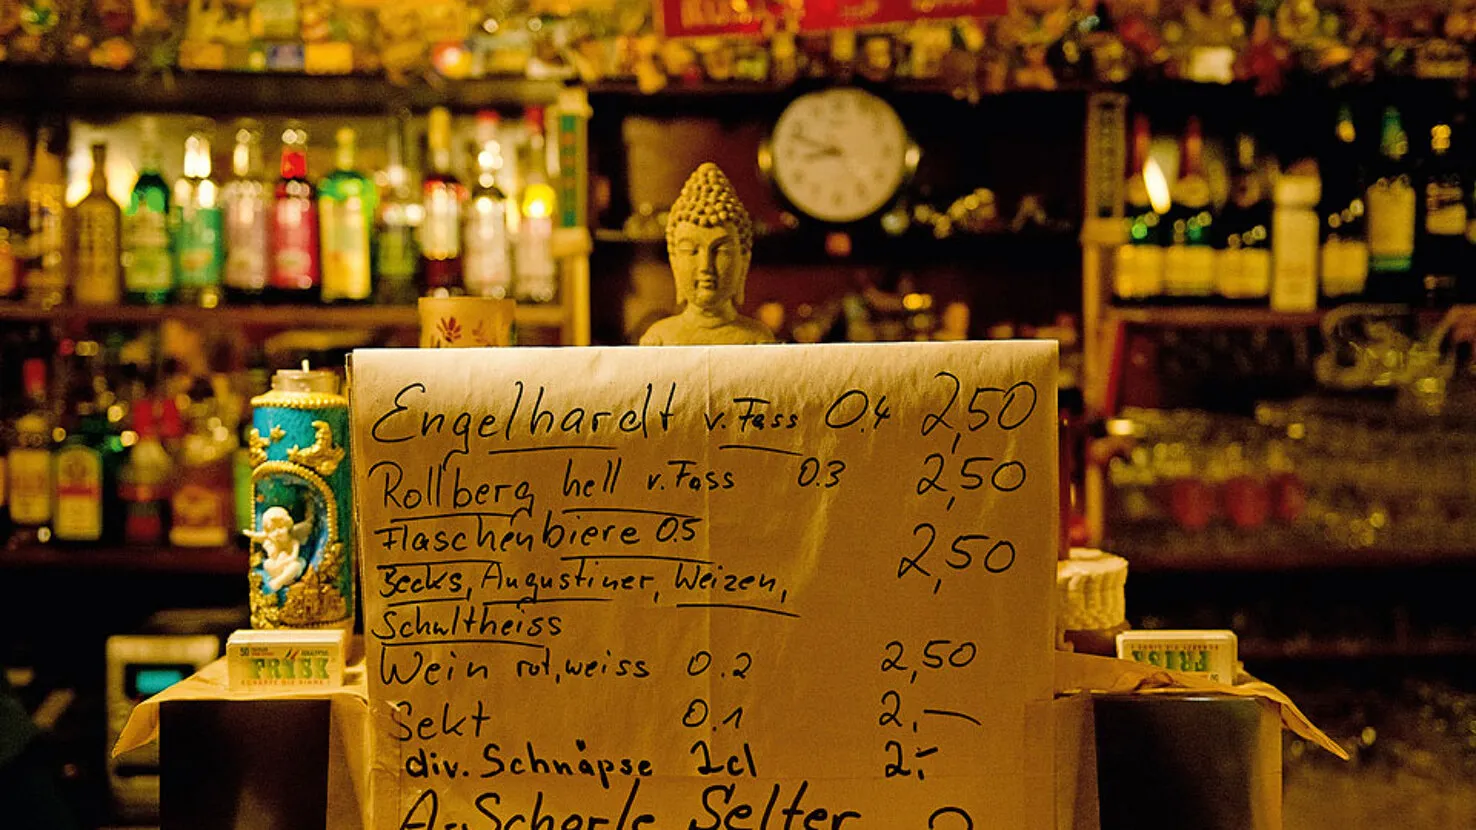 Engelhardt v. Fass 0.4 2,50
Rollberg hell v. Fass 0.3 2,50
Flaschenbiere 0.5 2,50
Becks, Augustiner, Weizen,
Schultheiss
Wein rot, weiss 0.2 2,50
Sekt 0.1 2,—
div. Schnäpse 2cl 2,-
A-Schorle Selter
50
FRISK
FRISK